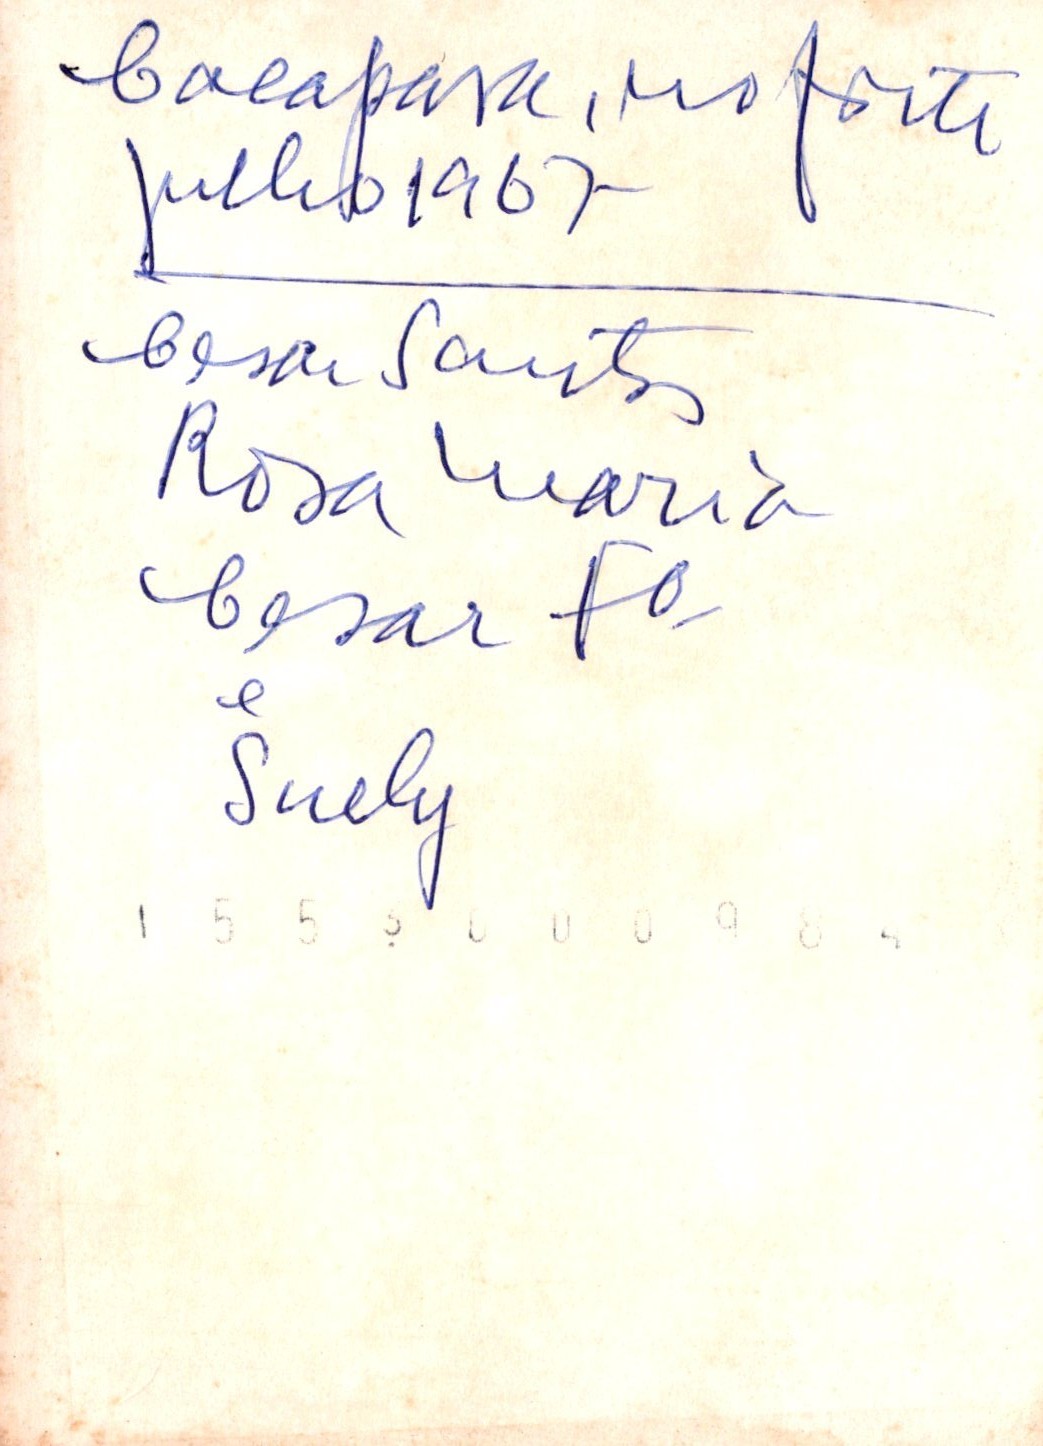 Caçapava, no forte
julho 1967
Cesar Santos
Rosa Maria
Cesar Fo
e
Suely